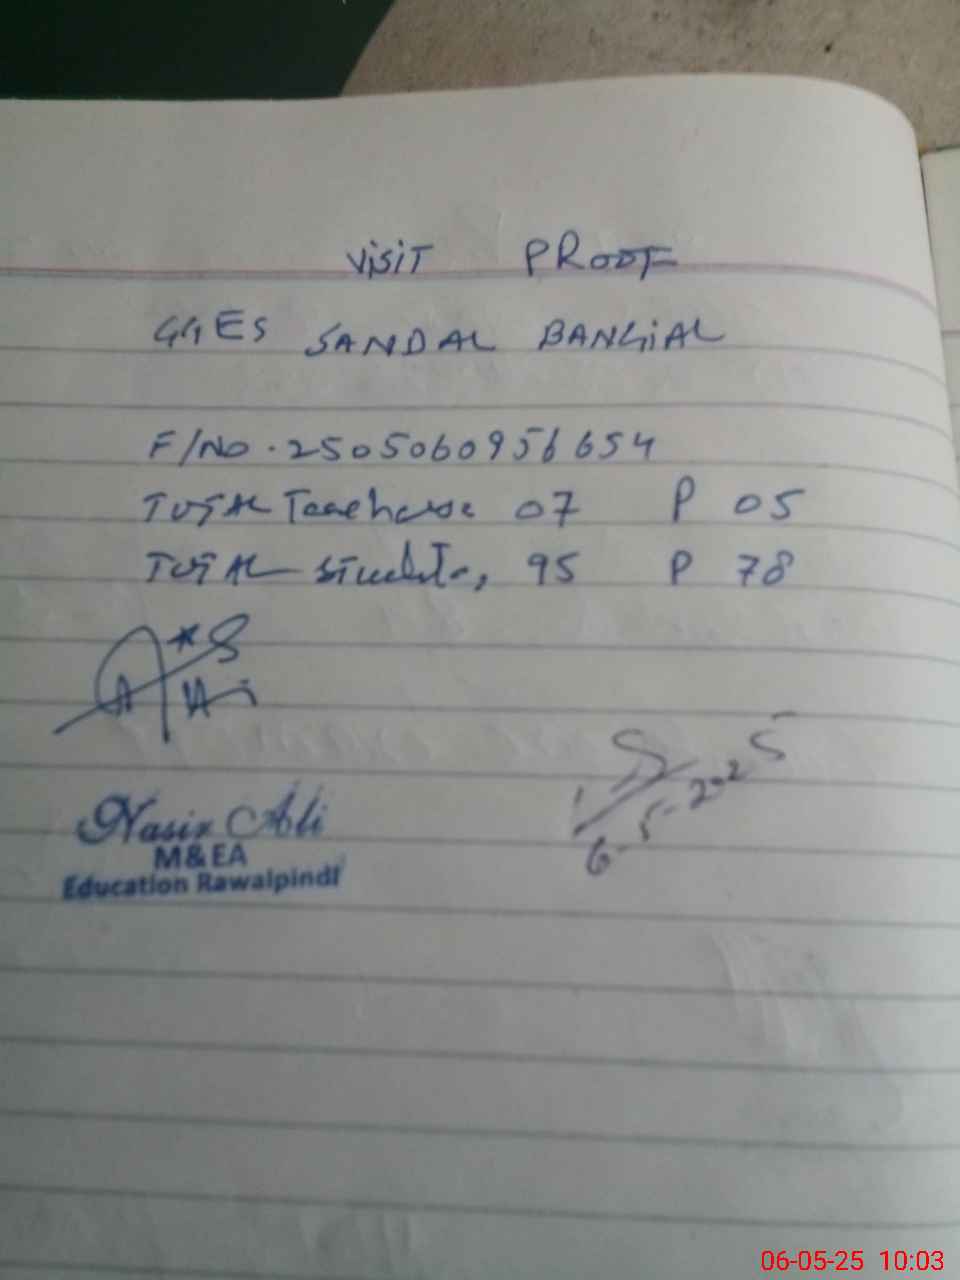 VISIT PROOF
GGES SANDAL BANGIAL
F/NO. 2505060956654
TOTAL Teachers 07 P 05
TOTAL Students, 95 P 78
Nasir Ali
M&EA
Education Rawalpindi
6-5-2025
06-05-25 10:03